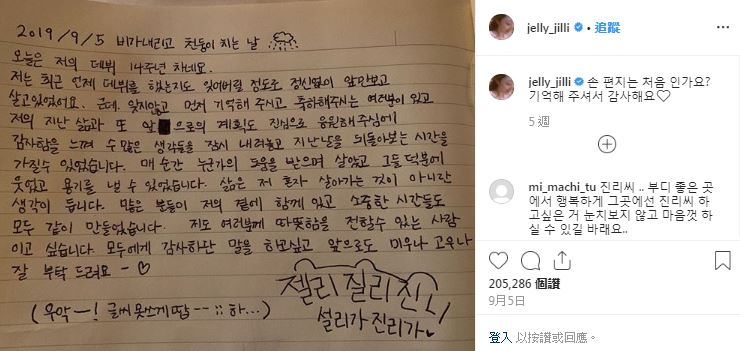 2019/9/5 비가내리고 천둥이 치는 날
오늘은 저의 데뷔 14주년 차네요.
저는 최근 언제 데뷔를 했는지도 잊어버릴 정도로 정신없이 앞만보고
살고있었어요. 근데, 잊지않고 먼저 기억해 주시고 축하해주시는 여러분이 있고
저의 지난 삶과 또 앞으로의 계획도 진심으로 응원해주심에
감사함을 느껴 수 많은 생각들을 잠시 내려놓고 지난날을 뒤돌아보는 시간을
가질수 있었습니다. 매 순간 누군가의 도움을 받으며 살았고 그들 덕분에
웃었고 용기를 낼 수 있었습니다. 삶은 저 혼자 살아가는 것이 아니란
생각이 듭니다. 많은 분들이 저의 곁에 함께 있고 소중한 시간들도
모두 같이 만들었습니다. 저도 여러분께 따뜻함을 전할수 있는 사람
이고 싶습니다. 모두에게 감사하단 말을 하고싶고 앞으로도 미우나 고우나
잘 부탁 드려요 - ♡
(우악-! 글씨 못쓰게땁--;; 하...)
젤리 질리 진리
설리가 진리가♥
jelly_jilli • 追蹤
jelly_jilli 손 편지는 처음 인가요?
기억해 주셔서 감사해요♡
5 週
mi_machi_tu 진리씨 .. 부디 좋은 곳
에서 행복하게 그곳에선 진리씨 하
고싶은 거 눈치보지 않고 마음껏 하
실 수 있길 바래요..
205,286 個讚
9月5日
登入 以按讚或回應。